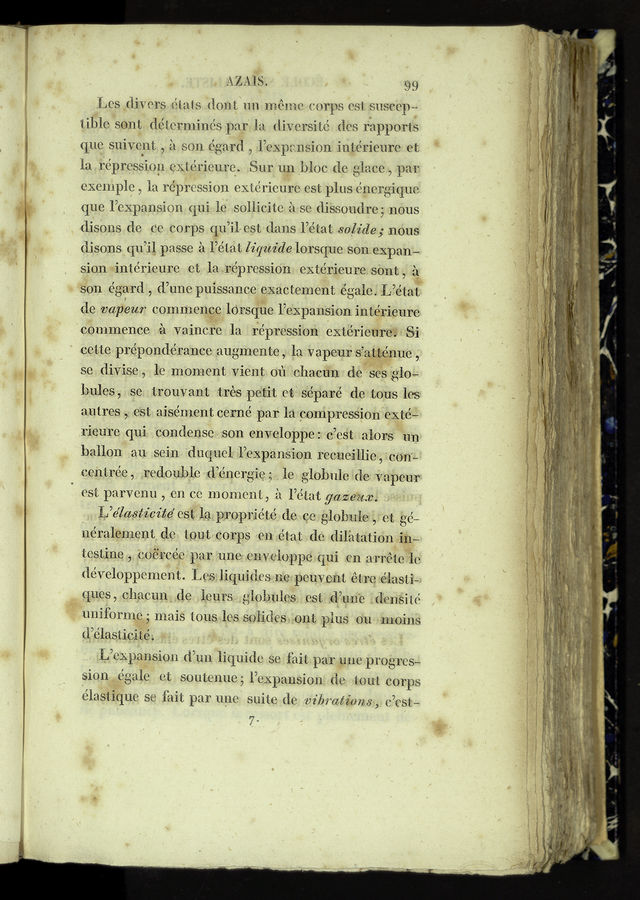 AZAIS.
99
Les divers états dont un même corps est suscep-
tible sont déterminés par la diversité des rapports
que suivent, à son égard, l'expansion intérieure et
la répression extérieure. Sur un bloc de glace, par
exemple, la répression extérieure est plus énergique
que l'expansion qui le sollicite à se dissoudre; nous
disons de ce corps qu'il est dans l'état solide; nous
disons qu'il passe à l'état liquide lorsque son expan-
sion intérieure et la répression extérieure sont, à
son égard, d'une puissance exactement égale. L'état
de vapeur commence lorsque l'expansion intérieure
commence à vaincre la répression extérieure. Si
cette prépondérance augmente, la vapeur s'atténue,
se divise, le moment vient où chacun de ses glo-
bules, se trouvant très petit et séparé de tous les
autres, est aisément cerné par la compression exté-
rieure qui condense son enveloppe: c'est alors un
ballon au sein duquel l'expansion recueillie, con-
centrée, redouble d'énergie; le globule de vapeur
est parvenu, en ce moment, à l'état gazeux.
L'élasticité est la propriété de ce globule, et gé-
néralement de tout corps en état de dilatation in-
testine, coërcée par une enveloppe qui en arrête le
développement. Les liquides ne peuvent être élasti-
ques, chacun de leurs globules est d'une densité
uniforme; mais tous les solides ont plus ou moins
d'élasticité.
L'expansion d'un liquide se fait par une progres-
sion égale et soutenue; l'expansion de tout corps
élastique se fait par une suite de vibrations, c'est-
7.